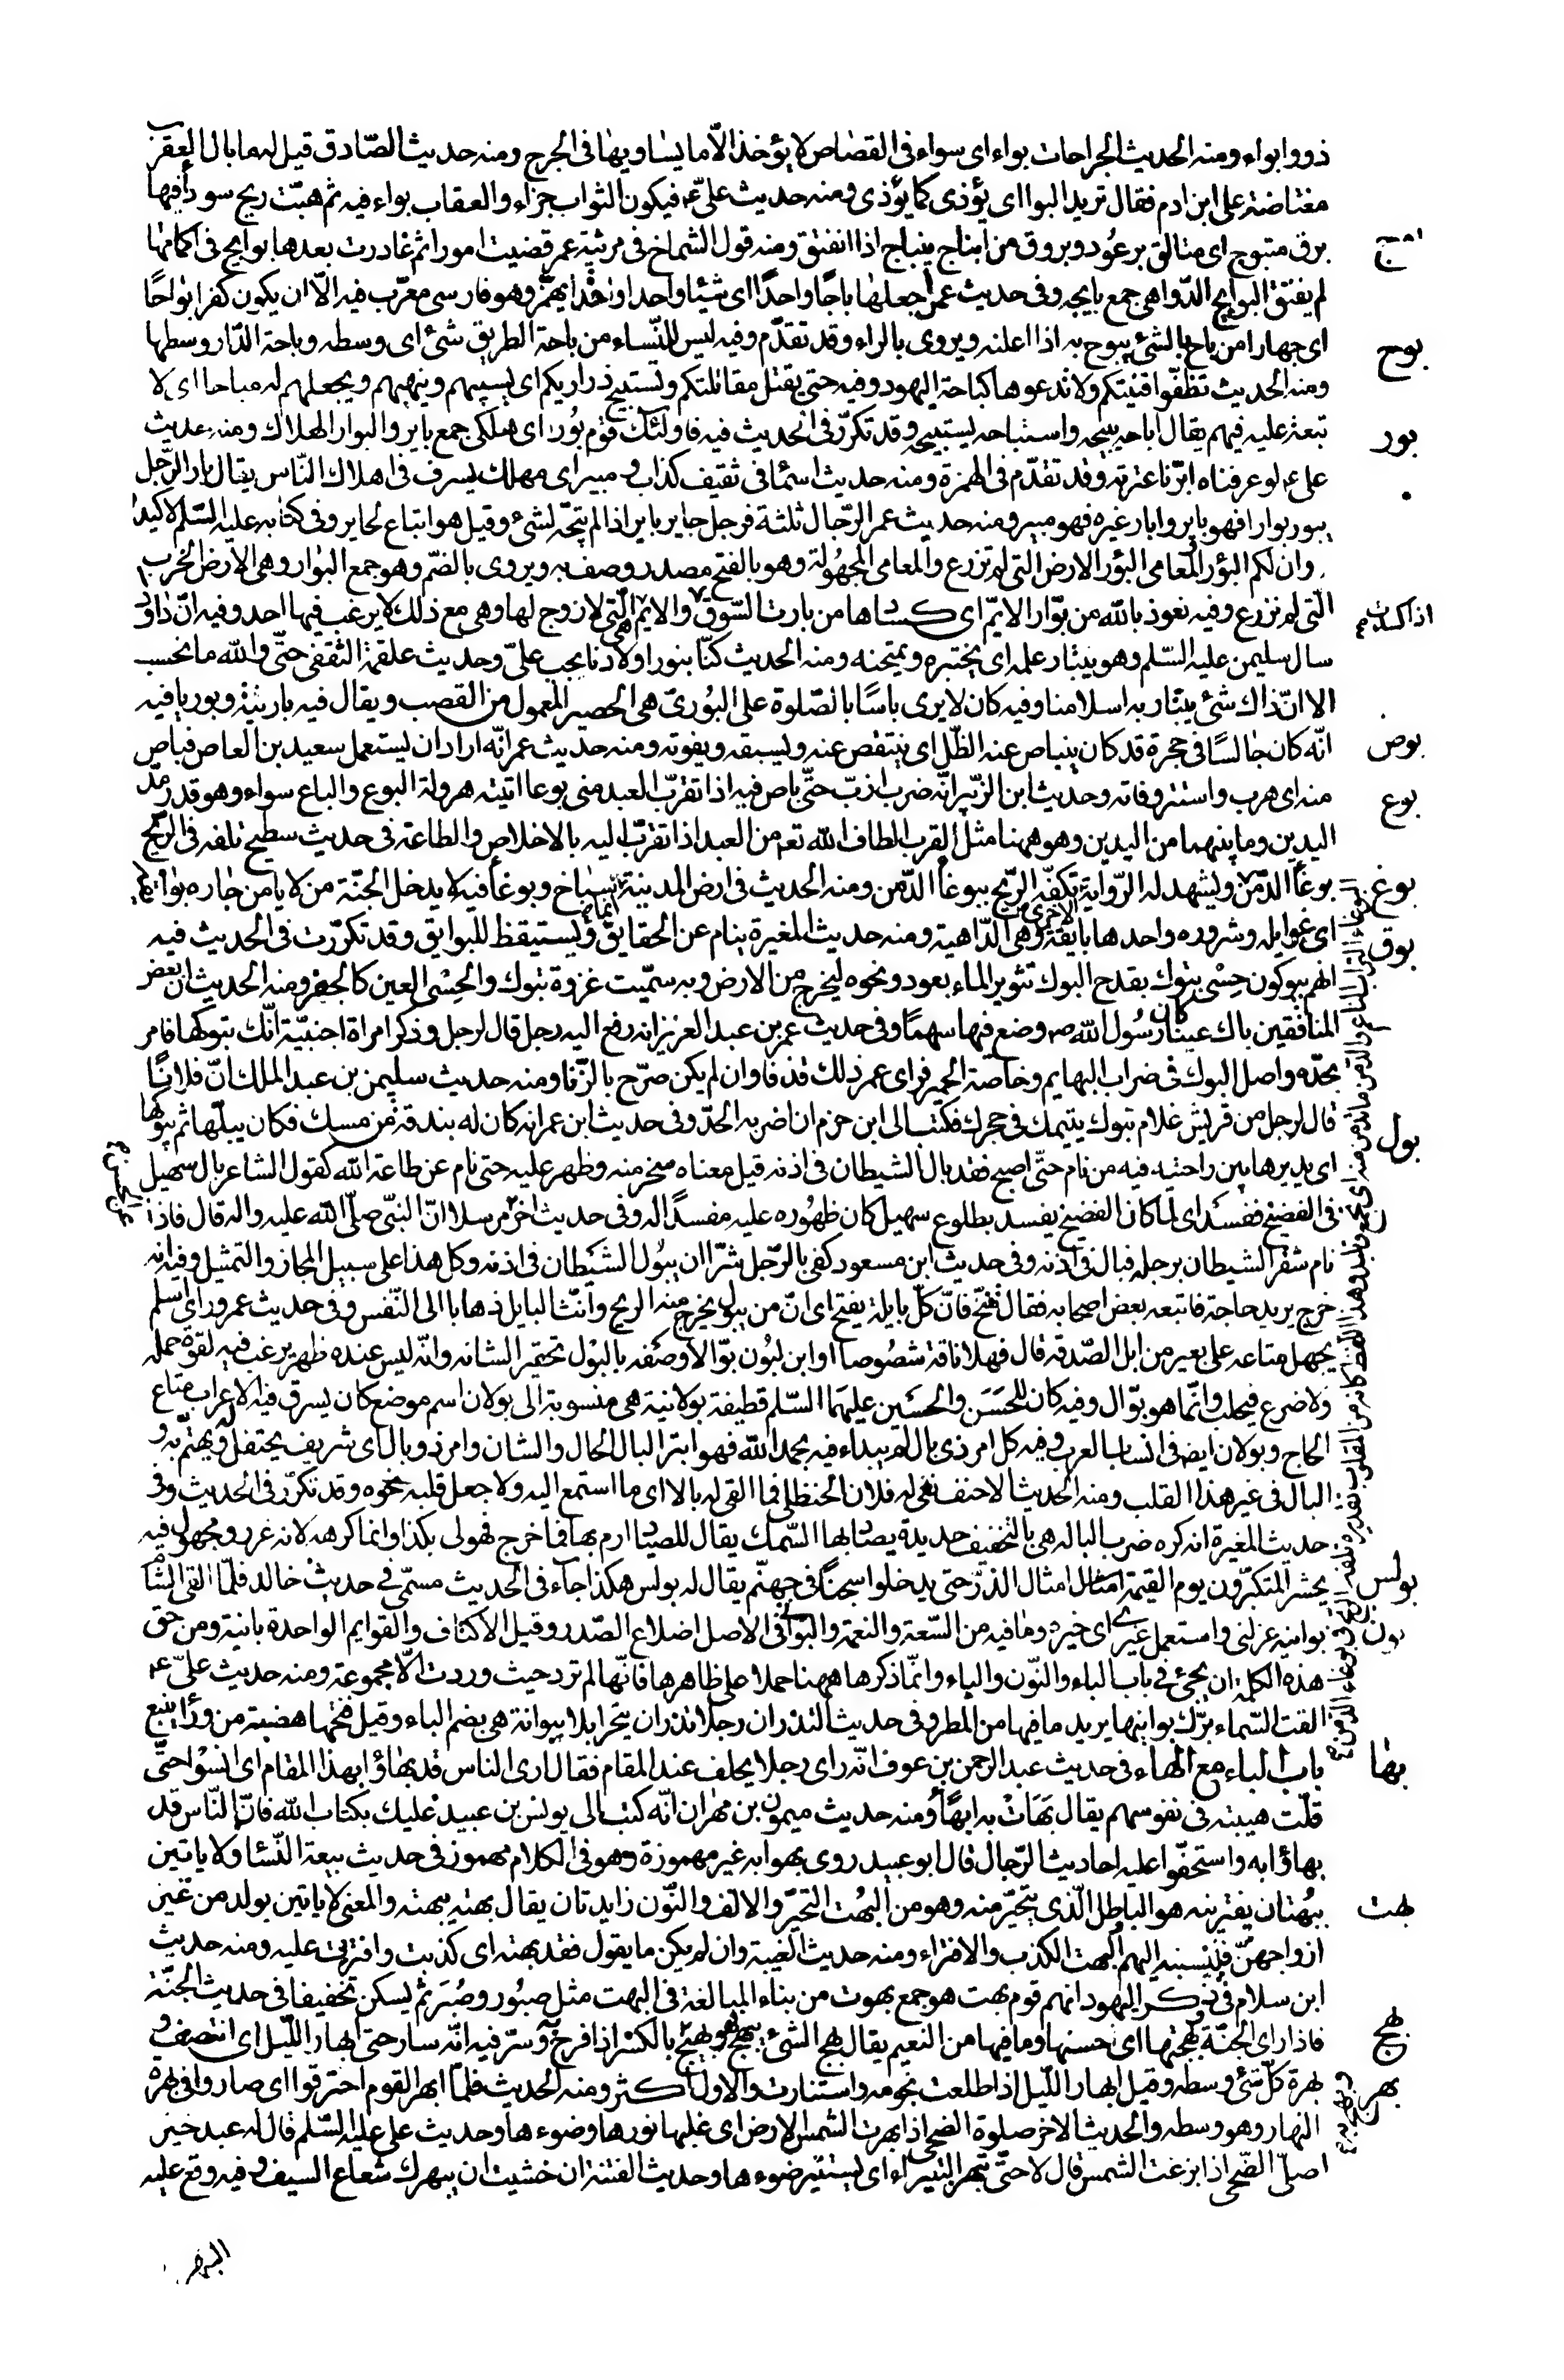 ذووا بواء ومنه الحديث الجراحات بواء اى سواء فى القصاص لا يؤخذ الّا ما يساويها فى الجرح ومنه حديث الصّادق قيل له ما بال العقرب
مغتاضة على ابن ادم فقال تريد البوا اى يؤذى كما يؤذى ومنه حديث علىّ ع فيكون الثواب جزاء والعقاب بواء فيه ثم هبّت ريح سوداء فيها
برق متبوج اى متالق برعود وبروق من انباج ينباج اذا انفتق ومنه قول الشماخ فى مرثية عمر قضيت امورا ثم غادرت بعدها بوايج فى اكمامها
لم يفتق البوايج الدّواهى جمع بايجه وفى حديث عمر اجعلها باجا واحدًا اى شيئا واحدا وقد يهمز وهو فارسى معرّب فيه الّا ان يكون كفرا بواحًا
بوح
اى جهارا من باح بالشئ يبوح به اذا اعلنه ويروى بالراء وقد تقدّم وفيه ليس للنّساء من باحة الطريق شئ اى وسطه وباحة الدّار وسطها
ومنه الحديث نظفّوا افنيتكم ولا تدعوها كباحة اليهود وفيه حتى يقتل مقاتلتكم وتستبيح ذراريكم اى يسبيهم وينهبهم ويجعلهم له مباحا اى لا
بور
تبعة عليه فيهم يقال اباحه يبيحه واستباحه يستبيحه وقد تكرّر فى الحديث فيه فاولئك قوم بُور اى هلكى جمع باير والبوار الهلاك ومنه حديث
على ع لو عرفناه ابرّنا عترته وقد تقدّم فى الهمزة ومنه حديث اسمآ فى ثقيف كذاب ومبير اى مهلك يسرف فى اهلاك النّاس يقال بار الرّجل
يبور بوارا فهو باير وابار غيره فهو مبير ومنه حديث عمر الرّجال ثلثة فرجل حاير باير اذا لم يتجّه لشئ وقيل هو اتباع لحاير وفى كتابه عليه السّلم لاكيدر
وان لكم البؤر والمعامى البؤر الارض التى لم تزرع والمعامى المجهولة وهو بالفتح مصدر وصف به ويروى بالضّم وهو جمع البوار وهى الارض الخراب
التى لم تزرع وفيه نعوذ بالله من بوّار الايّم اى كسادها من بارت السّوق والايّم التى لا زوج لها وهى مع ذلك لا يرغب فيها احد وفيه انّ داود
اذا كسدت
سال سليمن عليه السّلم وهو يبتار علمه اى يختبره ويمتحنه ومنه الحديث كنّا نبور اولادنا بحب علىّ وحديث علقمة الثقفى حتّى والله ما نحسب
الا انّ ذاك شئ يبتار به اسلامنا وفيه كان لا يرى باسًا بالصّلوة على البُورىّ هى الحصير المعمول من القصب ويقال فيه بارية وبوريا فيه
بوص
انّه كان جالسًا فى حجرة قد كان ينباص عنه الظّل اى ينتقص عنه ويسبقه ويفوته ومنه حديث عمر انّه اراد ان يستعمل سعيد بن العاص فباص
بوع
منه اى هرب واستتر وفاته وحديث ابن الزّبير انّه ضرب ازبّ حتّى باص فيه اذا تقرّب العبد منى بوعا اتيته هرولة البوع والباع سواء وهو قدر مدّ
اليدين وما بينهما من اليدين وهو ههنا مثل القرب الطاف الله تع من العبد اذا تقرّب اليه بالاخلاص والطاعة فى حديث سطيح تلفه فى الريّح
بوغ
بوغآ الدّمن ويشهد له الرّواية الاخرى تكفّه الرّيح ببوغآ الدّمن ومنه الحديث فى ارض المدينة انّما هى سباخ وبوغآ فيه لا يدخل الجنّة من لا يامن جاره بوايقه
بوق
اى غوايله وشروره واحدها بايقة وهى الدّاهية ومنه حديث المغيرة ينام عن الحقايق ويستيقظ للبوايق وقد تكرّرت فى الحديث فيه
انهم يبوكون حِسْى تبوك بقدح البوك تثوير الماء بعود ونحوه ليخرج من الارض وبه سمّيت غزوة تبوك والحِسْى العين كالحفر ومنه الحديث ان بعض
المنافقين باك عينا كان رسُول الله ص وضع فيها سهمًا وفى حديث عمر بن عبد العزيز انه رفع اليه رجل قال لرجل وذكر امراة اجنبيّة انّك تبوكها فامر
بحدّه واصل البوك فى ضراب البهايم وخاصة الحمير فراى عمر ذلك قذفا وان لم يكن صرّح بالزّنا ومنه حديث سليمن بن عبد الملك انّ فلانًا
قال لرجل من قريش غلام تبوك يتيمك فى حجرك فكتب الى ابن حزم ان اضربه الحدّ وفى حديث ابن عمر انه كان له بندقة من مسك فكان يبلّها ثم يبوكها
بول
اى يديرها بين راحتيه فيه من نام حتّى اصبح فقد بال الشيطان فى اذنه قيل معناه سخر منه وظهر عليه حتى نام عن طاعة الله كقول الشاعر بال سهيل
فى الفضيخ ففسد اى لمّا كان الفضيخ يفسد بطلوع سهيل كان ظهُوره عليه مفسدًا له وفى حديث اخر مرسلا انّ النبىّ صلّى الله عليه واله قال فاذا
نام شفر الشيطان برجله فبال فى اذنه وفى حديث ابن مسعود كفى بالرّجل شرّا ان يبُول الشيطان فى اذنه وكل هذا على سبيل المجاز والتمثيل وفيه انه
خرج يريد حاجة فاتبعه بعض اصحابه فقال تنحّ فانّ كلّ بايلة يفتح اى انّ من يبول يخرج منه الريح وانّث البايل ذهابا الى النّفس وفى حديث عمر وراى اسلم
يحمل متاعه على بعير من ابل الصّدقة قال فهلا ناقة شصُوصا او ابن لبُون بوّالا وصفه بالبَوْل تحقيرا لشانه وانّه ليس عنده ظهر يرغب فيه لقوة حمله
ولا ضرع فيحلب وانّما هو بوّال وفيه كان للحَسَن والحسَين عليهما السّلم قطيفة بولانية هى منسوبة الى بولان اسم موضع كان يسرق فيه الاعراب متاع
الحاج وبولان ايض فى انساب العرب وفيه كل امر ذى بال لم يبداء فيه بحمد الله فهو ابتر البال الحال والشان وامر ذو بال اى شريف يحتفل له ويهتمّ به و
البال فى غير هذا القلب ومنه الحديث الاحنف نعى له فلان الحنظلى فما القى له بالا اى ما استمع اليه ولا جعل قلبه نحوه وقد تكرّر فى الحديث وفى
حديث المغيرة انه كره ضرب البالة هى بالتخفيف حديدة يصاد بها السّمك يقال للصياد ارم بها فما خرج فهو لى بكذا وانما كرهه لانه غرر ومجهول فيه
بولس
يحشر المتكبّرون يوم القيمة امثال الذّرّ حتى يدخلوا سجنًا فى جهنّم يقال له بولس هكذا جاء فى الحديث مسمّى فى حديث خالد فلمّا القى الشام
بون
بوانيه عزلنى واستعمل غيرى اى خيره وما فيه من السّعة والنعمة والبوانى فى الاصل اضلاع الصّدر وقيل الاكتاف والقوايم الواحدة بانية ومن حق
هذه الكلمة ان يجئ فى باب الباء والنّون والياء وانّما ذكرها ههنا حملا على ظاهرها فانّها لم ترد حيث وردت الّا مجموعة ومنه حديث علىّ ع
القت السّماء برك بوانيها يريد ما فيها من المطر وفى حديث النذر ان رجلا نذر ان ينحر ابلا ببوانة هى بضم الباء وقيل فتحها هضبة من ورآ ينبع
بهأ
باب الباء مع الهاء فى حديث عبد الرحمن بن عوف انّه راى رجلا يحلف عند المقام فقال ارى الناس قد بهأوا بهذا المقام اى انسوا حتّى
قلّت هيبته فى نفوسهم يقال بَهَاتْ به ابهأ ومنه حديث ميمون بن مهران انّه كتب الى يونس بن عبيد عليك بكتاب الله فانّ النّاس قد
بهاؤا به واستخفّوا عليه احاديث الرّجال قال ابو عبيد روى بهوا به غير مهموزة وهو فى الكلام مهموز فى حديث بيعة النّسآ ولا ياتين
بهت
ببُهتان يفترينه هو الباطل الّذى يتحيّر منه وهو من البُهت التحيّر والالف والنّون زايدتان يقال بهته يبهته والمعنى لا ياتين بولد من غير
ازواجهنّ فينسبنه اليهم والبهت الكذب والافتراء ومنه حديث الغيبة وان لم يكن ما يقول فقد بهته اى كذبت وافتريت عليه ومنه حديث
ابن سلام فى ذكر اليهود انهم قوم بهت هو جمع بهوت من بناء المبالغة فى البهت مثل صبُور وصُبَر ثم يسكن تخفيفا فى حديث الجنّة
بهج
فاذا راى الجنّة وبهجتها اى حسنها وما فيها من النعيم يقال بهج الشئ يبهج فهو بهيج وبهج بالكسر اذا فرح وسرّ فيه انّه سار حتى ابهارّ اللّيل اى انتصف و
بهر
بهرة كلّ شئ وسطه وقيل ابهارّ اللّيل اذا طلعت نجومه واستنارت والاول اكثر ومنه الحديث فلمّا ابهر القوم احترقوا اى صاروا فى بهرة
النهار وهو وسطه والحديث الاخر صلوة الضحى اذا بهرت الشمس الارض اى غلبها نورها وضوءها وحديث على عليه السّلم قال له عبد خير
اصلّى الضّحى اذا بزغت الشمس قال لا حتّى تبهر البتيراء اى يستنير ضوءها وحديث الفتنة ان خشيت ان يبهرك شعاع السيف وفيه وقع عليه
البهر